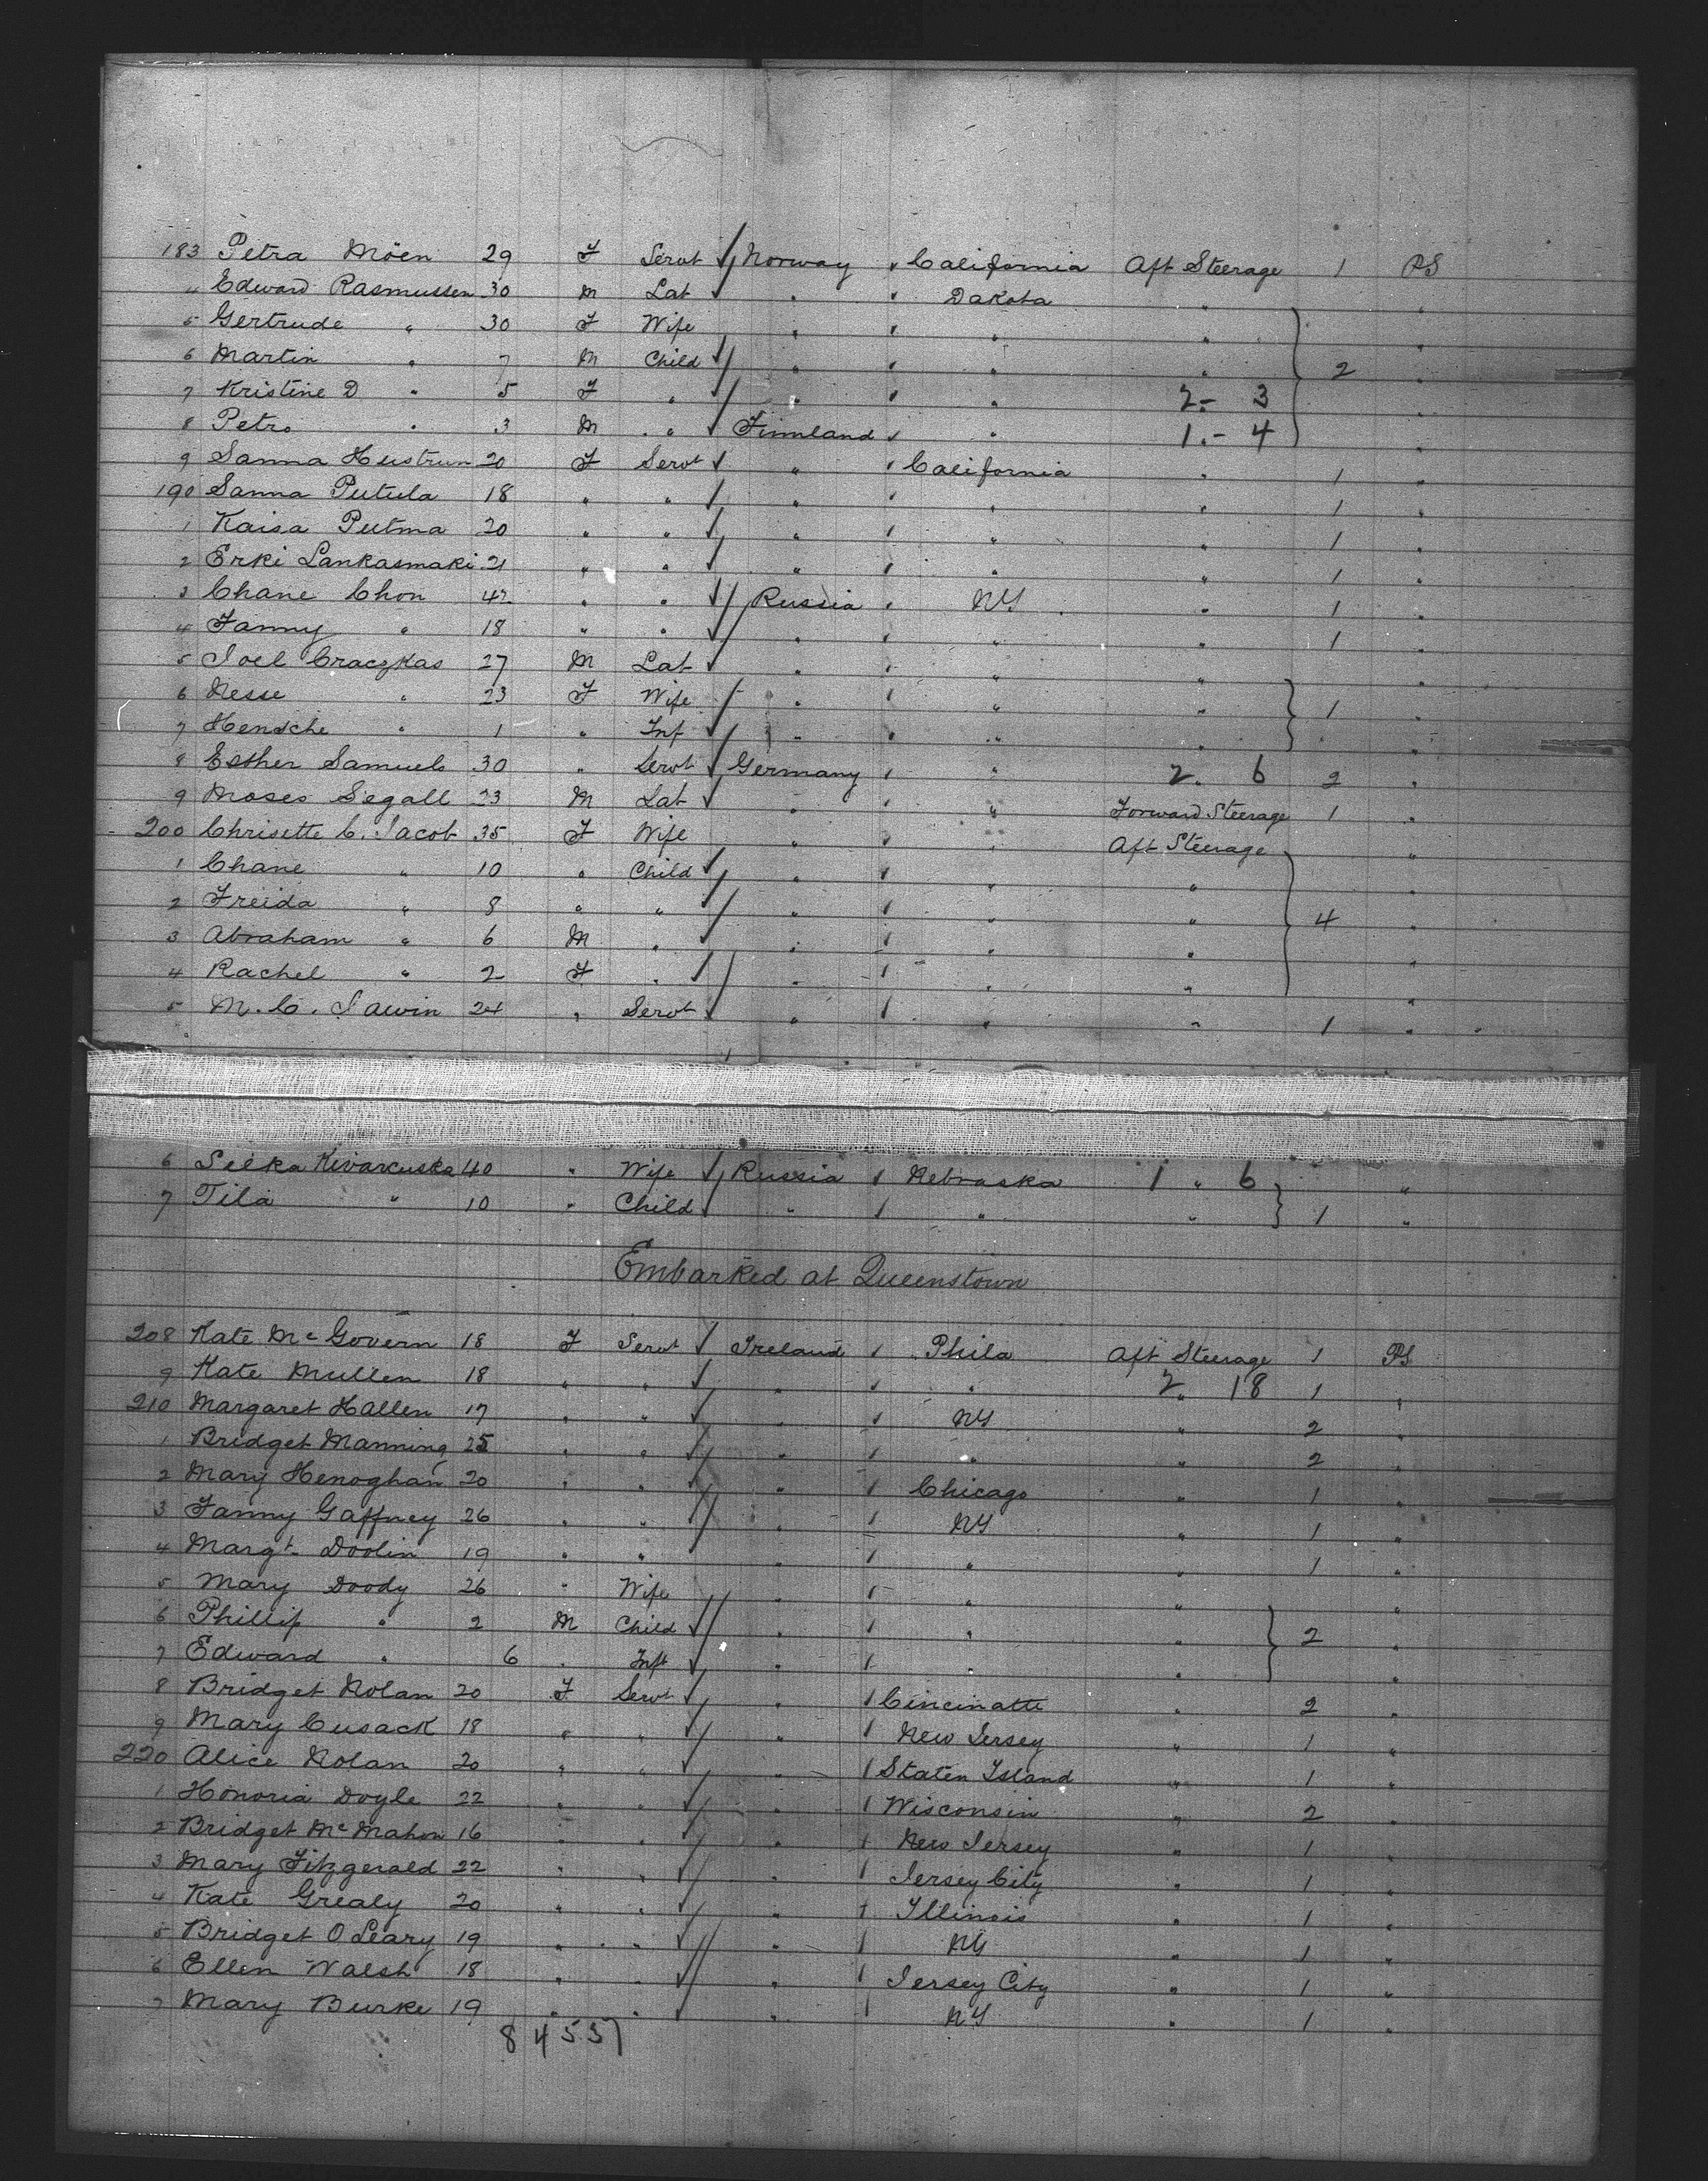 183 Petra Möen 29 F Servt Norway California Aft Steerage 1 PS
4 Edward Rasmussen 30 M Lab " Dakota " "
5 Gertrude " 30 F Wife " " " "
6 Martin " 7 M Child " " " 2 "
7 Kristine D " 5 F " " " 2 - 3 "
8 Petro " 3 M " Finnland " 1 - 4 "
9 Sanna Hustrun 20 F Servt " California " 1 "
190 Sanna Putula 18 " " " " " 1 "
1 Kaisa Putma 20 " " " " " 1 "
2 Erki Lankasmaki 21 " " " " " 1 "
3 Chane Chon 42 " " Russia NY " 1 "
4 Fanny " 18 " " " " " 1 "
5 Joel Craczkas 27 M Lab " " " "
6 Nesse " 23 F Wife " " " 1 "
7 Hensche " 1 " Inf " " " "
8 Esther Samuels 30 " Servt Germany " 2 " 6 2 "
9 Moses Segall 23 M Lab " " Forward Steerage 1 "
200 Chrisette C. Jacob 35 F Wife " " Aft Steerage "
1 Chane " 10 " Child " " " "
2 Freida " 8 " " " " " 4 "
3 Abraham " 6 M " " " " "
4 Rachel " 2 F " " " "
5 M. C. Sawin 24 " Servt " " " 1 "
6 Seeka 40 " Wife Russia Nebraska 1 " 6 "
7 Tila " 10 " Child " " " 1 "
Embarked at Queenstown
208 Kate McGovern 18 F Servt Ireland Phila Aft Steerage 1 PS
9 Kate Mullen 18 " " " " 2 " 18 1 "
210 Margaret Hallen 17 " " " NY " 2 "
1 Bridget Manning 25 " " " " " 2 "
2 Mary Henoghan 20 " " " Chicago " 1 "
3 Fanny Gaffney 26 " " " NY " 1 "
4 Margt Doolin 19 " " " " " 1 "
5 Mary Doody 26 " Wife " " " "
6 Phillip " 2 M Child " " " 2 "
7 Edward " 6 " Inft " " " "
8 Bridget Nolan 20 F Servt " Cincinatti 2 "
9 Mary Cusack 18 " " " New Jersey " 1 "
220 Alice Nolan 20 " " " Staten Island " 1 "
1 Honoria Doyle 22 " " " Wisconsin " 2 "
2 Bridget McMahon 16 " " " New Jersey " 1 "
3 Mary Fitzgerald 22 " " " Jersey City " 1 "
4 Kate Grealy 20 " " " Illinois " 1 "
5 Bridget O'Leary 19 " " " NY " 1 "
6 Ellen Walsh 18 " " " Jersey City " 1 "
7 Mary Burke 19 " " " NY " 1 "
84557